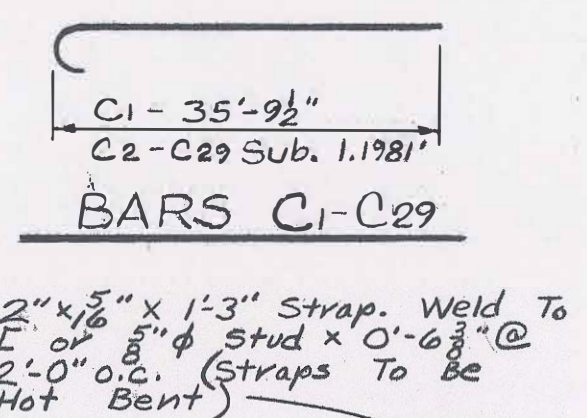 C1 - 35'-9½"
C2-C29 Sub. 1.1981'
BARS C1-C29
2"x5/16" x 1'-3" Strap. Weld To
or 5/8"φ Stud x 0'-6 3/8" @
2'-0" o.c. (Straps To Be
Hot Bent)